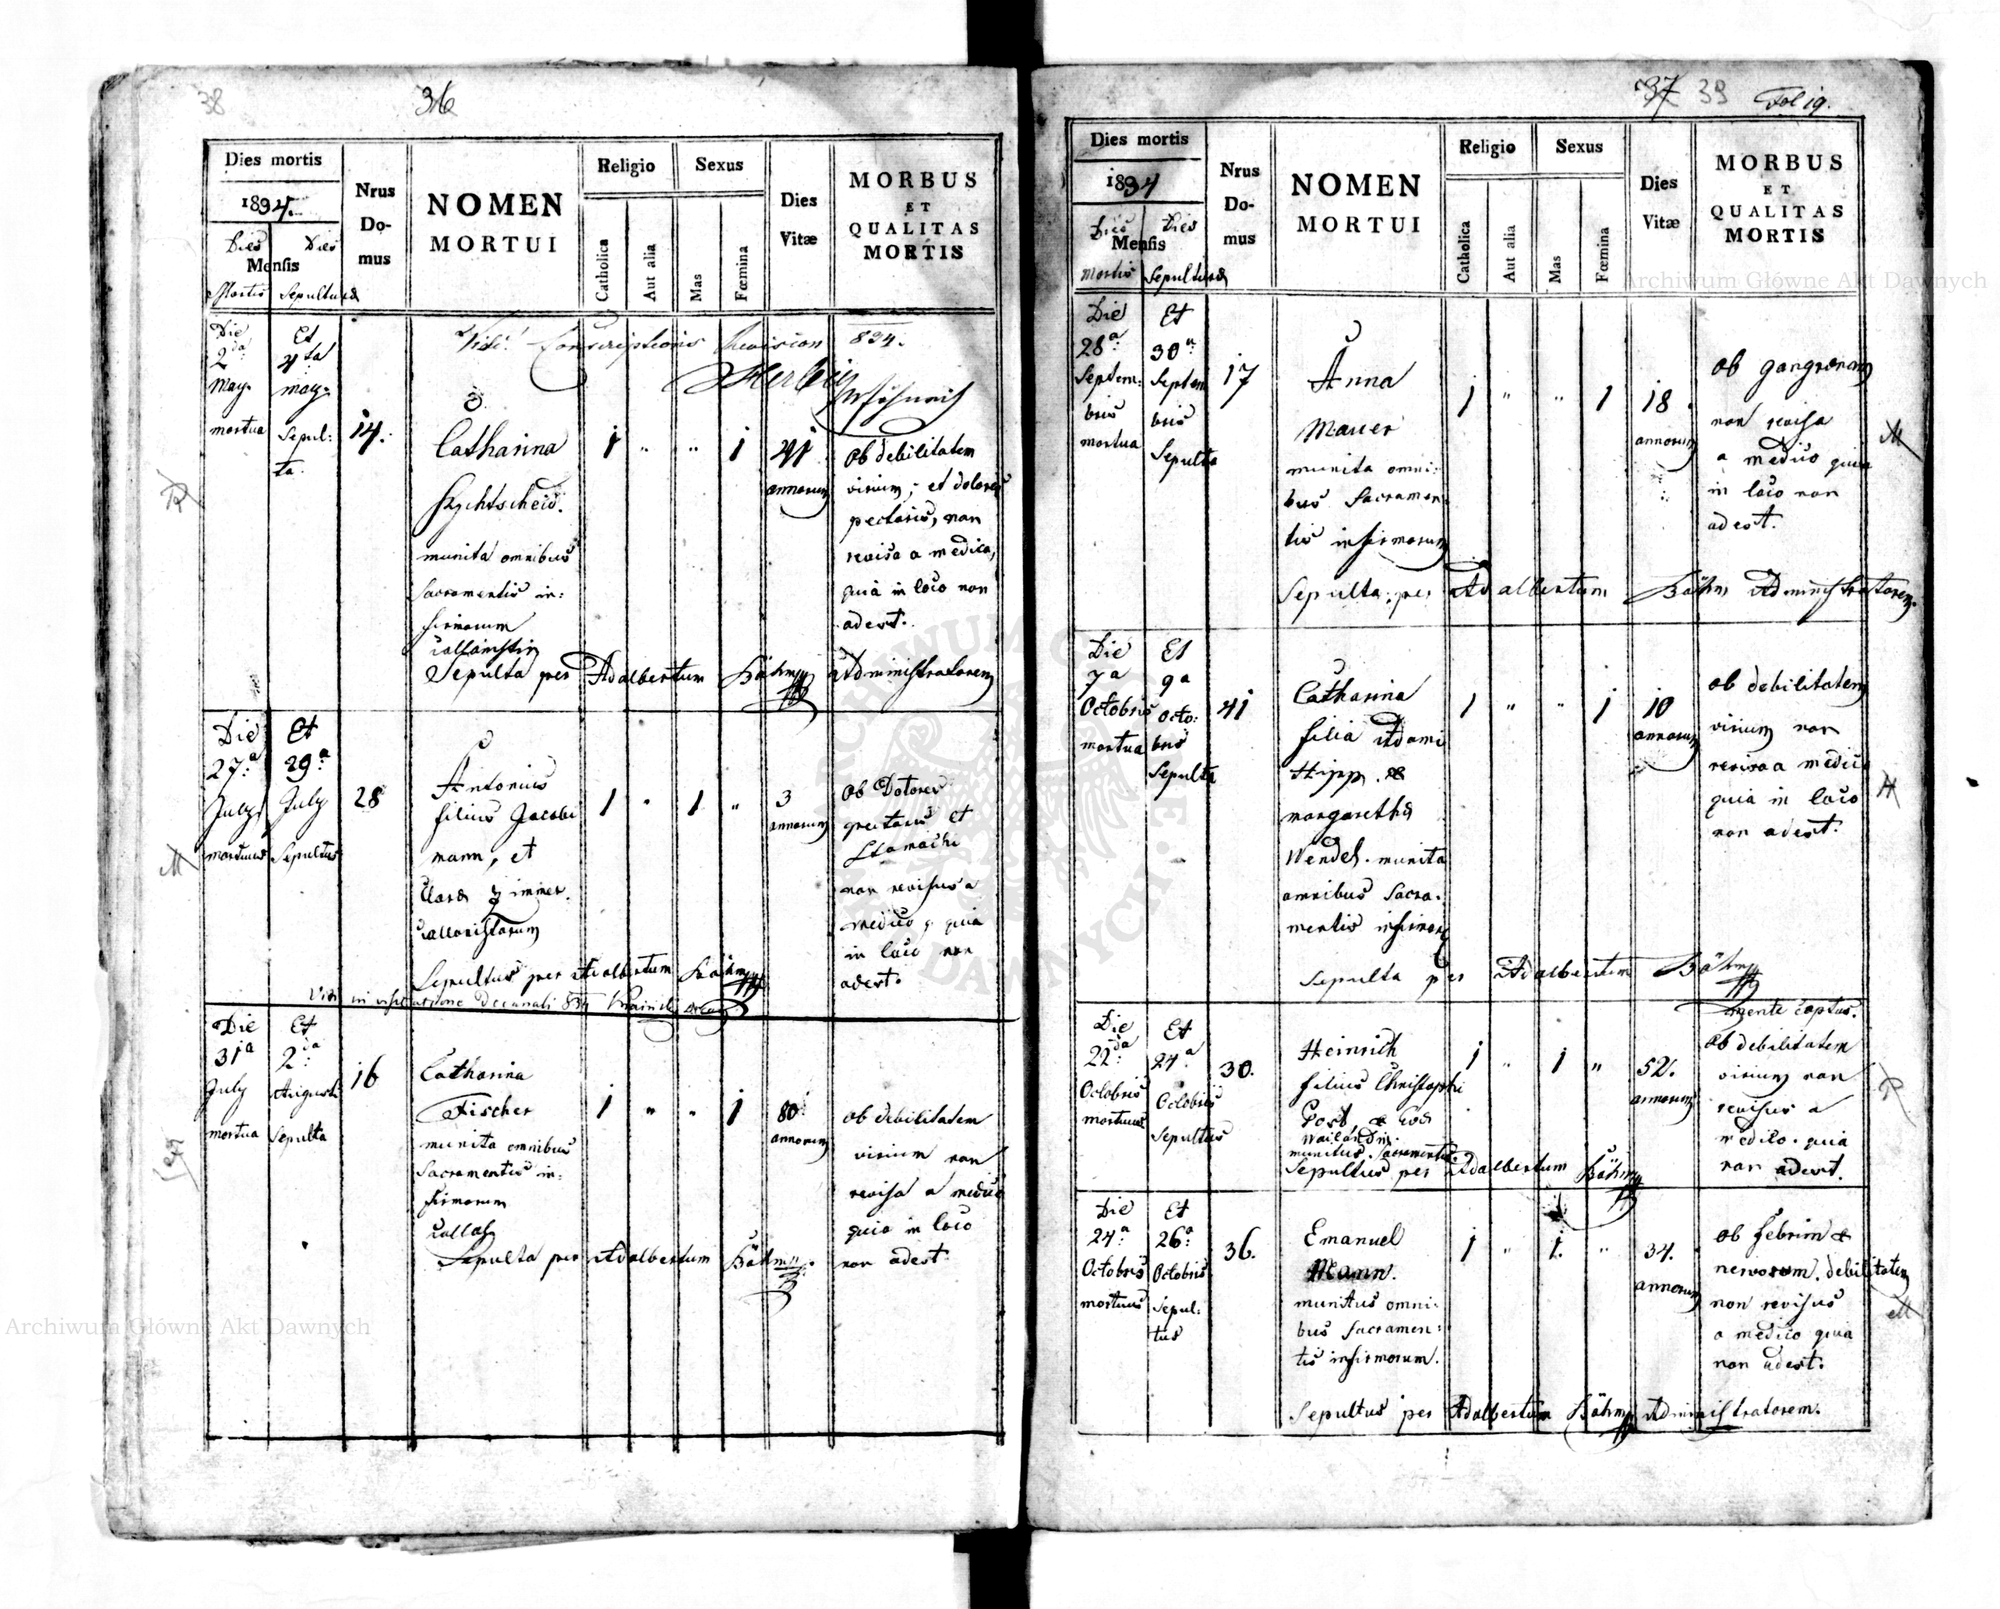 38
36
Dies mortis
1834.
Dies Dies
Mensis
Mortis Sepulturæ
Nrus
Do-
mus
NOMEN
MORTUI
Religio
Catholica
Aut alia
Sexus
Mas
Fœmina
Dies
Vitæ
MORBUS
ET
QUALITAS
MORTIS
Vidi Conscriptionis Revision 834.
Die
2da
May.
mortua
Et
4ta
may.
Sepul:
ta.
14.
Catharina
munita omnibus
Sacramentis in:
firmorum
1 " " 1
41
annorum
ob debilitatem
virium, et dolores
pectoris, non
revisa a medico,
quia in loco non
adest.
Sepulta per Adalbertum Böhm Administratorem
Die
27.a
July
mortuus
Et
29.a
July
Sepultus
28
Antonius
filius Jacobi
mann, et
Claræ Zimmer.
1 " 1 "
3
annorum
ob Dolores
pectoris et
Stomachi
non revisus a
medico, quia
in loco non
adest.
Sepultus per Adalbertum Böhm
Vidi in visitatione decanali 834
Die
31a
July
mortua
Et
2da
Augusti
Sepulta
16
Catharina
Fischer
munita omnibus
Sacramentis in:
firmorum
1 " " 1
80
annorum
ob debilitatem
virium non
revisa a medico
quia in loco
non adest.
Sepulta per Adalbertum Böhm.
37 39 Fol 19.
Dies mortis
1834
Dies Dies
Mensis
Mortis Sepulturæ
Nrus
Do-
mus
NOMEN
MORTUI
Religio
Catholica
Aut alia
Sexus
Mas
Fœmina
Dies
Vitæ
MORBUS
ET
QUALITAS
MORTIS
Die
28a
Septem:
bris
mortua
Et
30a
Septem
bris
Sepulta
17
Anna
Mauer
munita omni:
bus Sacramen
tis infirmorum
1 " " 1
18.
annorum
ob gangrænam
non revisa
a medico quia
in loco non
adest.
M
Sepulta per Adalbertum Böhm Administratorem.
Die
7a
Octobris
mortua
Et
9a
Octo:
bris
Sepulta
41
Catharina
filia Adami
Hipp. &
margaretha
Wendel. munita
omnibus Sacra:
mentis infirmor
1 " " 1
10
annorum
ob debilitatem
virium non
revisa a medico
quia in loco
non adest.
H
Sepulta per Adalbertum Böhm
Die
22da
Octobris
mortuus
Et
24a
Octobris
Sepultus
30.
Heinrich
filius Christophi
munitus Sacramentis.
1 " 1 "
52.
annorum
mente captus.
ob debilitatem
virium non
revisus a
medico. quia
non adest.
Sepultus per Adalbertum Böhm
Die
24a
Octobris
mortuus
Et
26a
Octobris
Sepul:
tus
36.
Emanuel
Mann.
munitus omni:
bus Sacramen:
tis infirmorum.
1 " 1. "
34.
annorum
ob febrim &
nervorum. debilitatem
non revisus
a medico quia
non adest.
M
Sepultus per Adalbertum Böhm Administratorem.
Archiwum Główne Akt Dawnych
Archiwum Główne Akt Dawnych